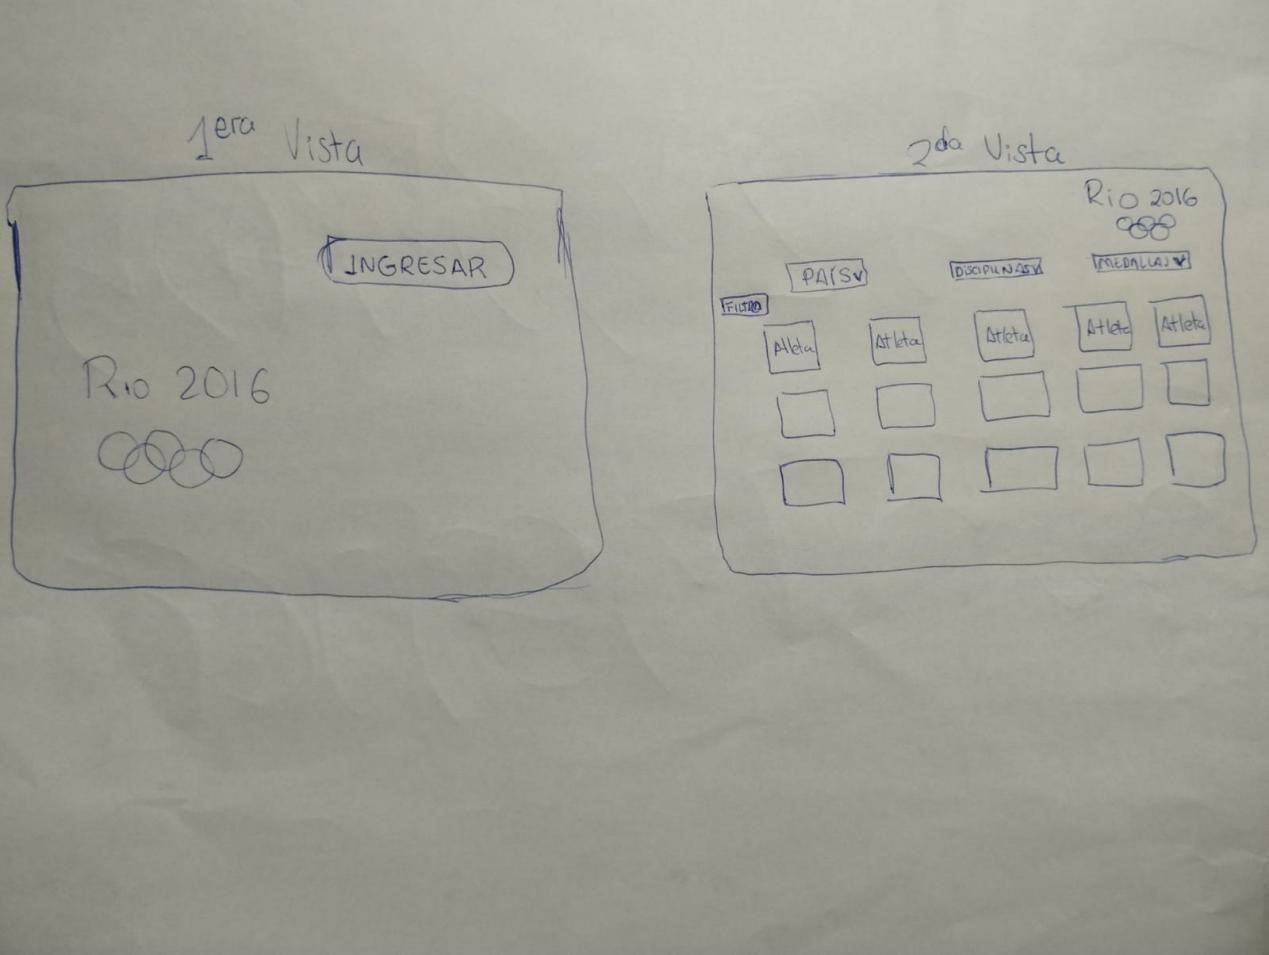 1era Vista
INGRESAR
Rio 2016
2da Vista
Rio 2016
PAÍS DISCIPLINAS MEDALLAS
FILTRO
Atleta Atleta Atleta Atleta Atleta